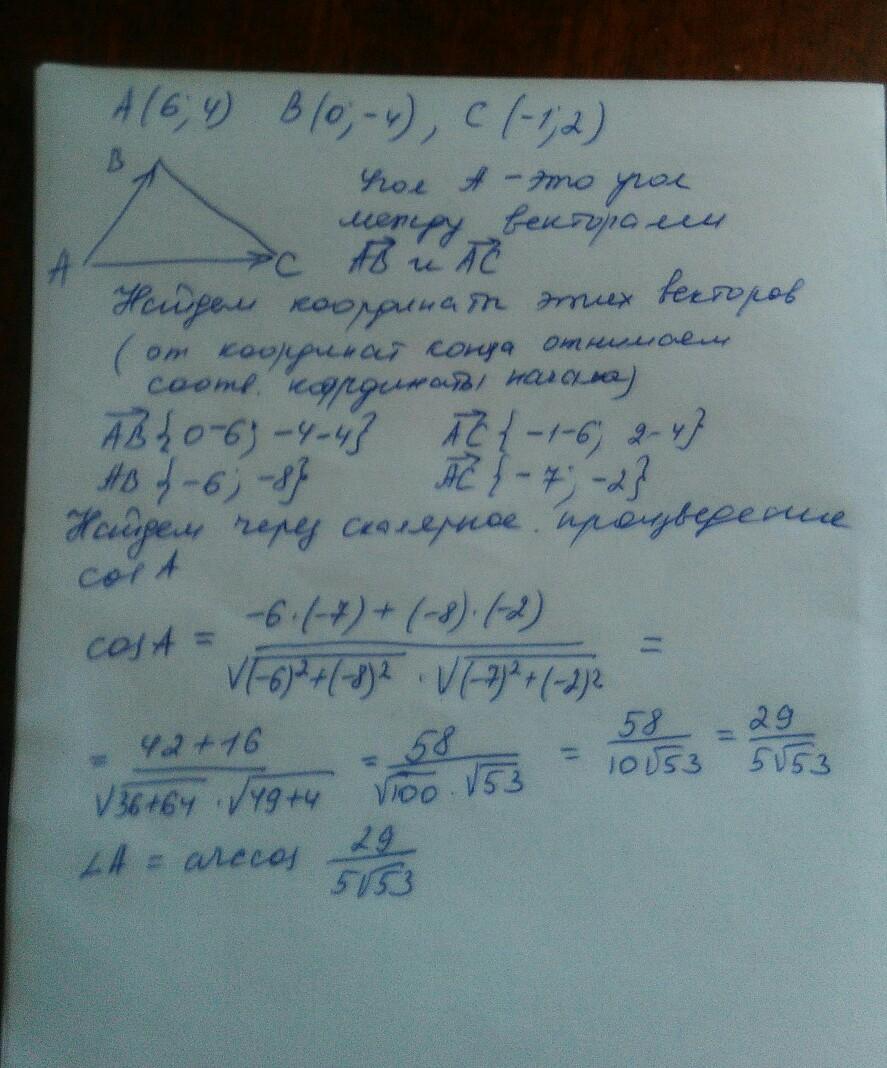 A(6; 4) B(0; -4), C(-1; 2)
B
Угол A - это угол
между векторами
A C AB и AC
Найдем координаты этих векторов
(от координат конца отнимаем
соотв. координаты начала)
AB {0-6; -4-4} AC {-1-6; 2-4}
AB {-6; -8} AC {-7; -2}
Найдем через скалярное произведение
cos A
cos A = (-6·(-7) + (-8)·(-2)) / (√(-6)²+(-8)² · √(-7)²+(-2)²) =
= (42+16) / (√36+64 · √49+4) = 58 / (√100 · √53) = 58 / (10√53) = 29 / (5√53)
∠A = arccos 29 / (5√53)